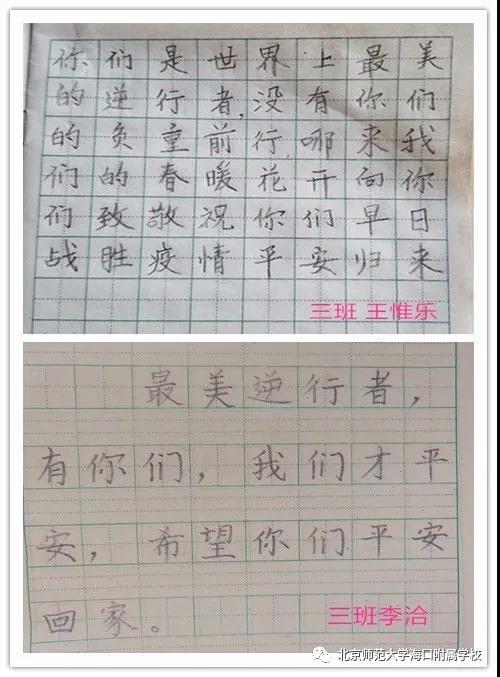 你们是世界上最美
的逆行者,没有你们
的负重前行,哪来我
们的春暖花开向你
们致敬祝你们早日
战胜疫情平安归来
三班 王惟乐
最美逆行者，
有你们，我们才平
安，希望你们平安
回家。
三班李洽
北京师范大学海口附属学校